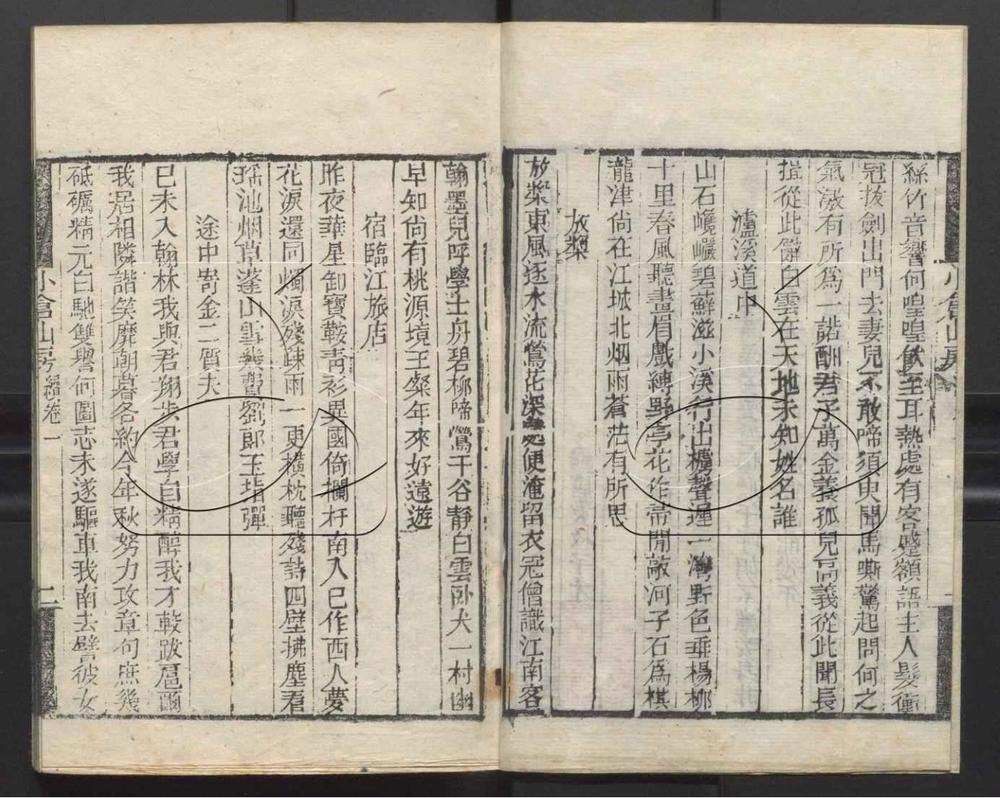 絲竹音響何喤喤飲至耳熱處有客蹙額語主人髮衝
冠拔劍出門去妻兒不敢啼須臾聞馬嘶驚起問何之
氣激有所為一諾酬君子萬金義孤兒高義從此聞長
揖從此辭白雲在天地未知姓名誰
瀘溪道中
山石巉巗碧蘚滋小溪行出櫓聲遲一灣野色垂楊柳
十里春風聽畫眉戲縛野亭花作帚閒敲河子石為棋
龍津尚在江城北烟雨蒼茫有所思
放槳
放槳東風逐水流鶯花深處便淹留衣冠僧識江南客
翰墨兒呼學士舟碧柳啼鶯千谷靜白雲卧犬一村幽
早知尚有桃源境王粲年來好遠遊
宿臨江旅店
昨夜華星卸寶鞍青衫異國倚欄杆南人已作西人夢
花淚還同燭淚殘疎雨一更橫枕聽殘詩四壁拂塵看
瑤池烟草蓬山雪幾費劉郎玉指彈
途中寄金二質夫
已未入翰林我與君翔步君學白精醇我才較跋扈爾
我居相隣諧笑靡朝暮各約今年秋努力攻章句庶幾
砥礪精元白馳雙譽何圖志未遂驅車我南去譬彼女
小倉山房
卷一
二
小倉山房